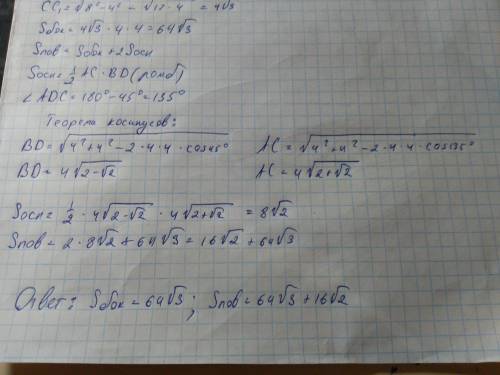 CC₁ = √8² - 4² = √12 · 4 = 4√3
Sбок = 4√3 · 4 · 4 = 64√3
Sпов = Sбок + 2Sосн
Sосн = 1/2 AC · BD (ромб)
∠ADC = 180° - 45° = 135°
Теорема косинусов:
BD = √4² + 4² - 2 · 4 · 4 · cos45° AC = √4² + 4² - 2 · 4 · 4 · cos135°
BD = 4√2-√2 AC = 4√2+√2
Sосн = 1/2 · 4√2-√2 · 4√2+√2 = 8√2
Sпов = 2 · 8√2 + 64√3 = 16√2 + 64√3
Ответ: Sбок = 64√3 ; Sпов = 64√3 + 16√2